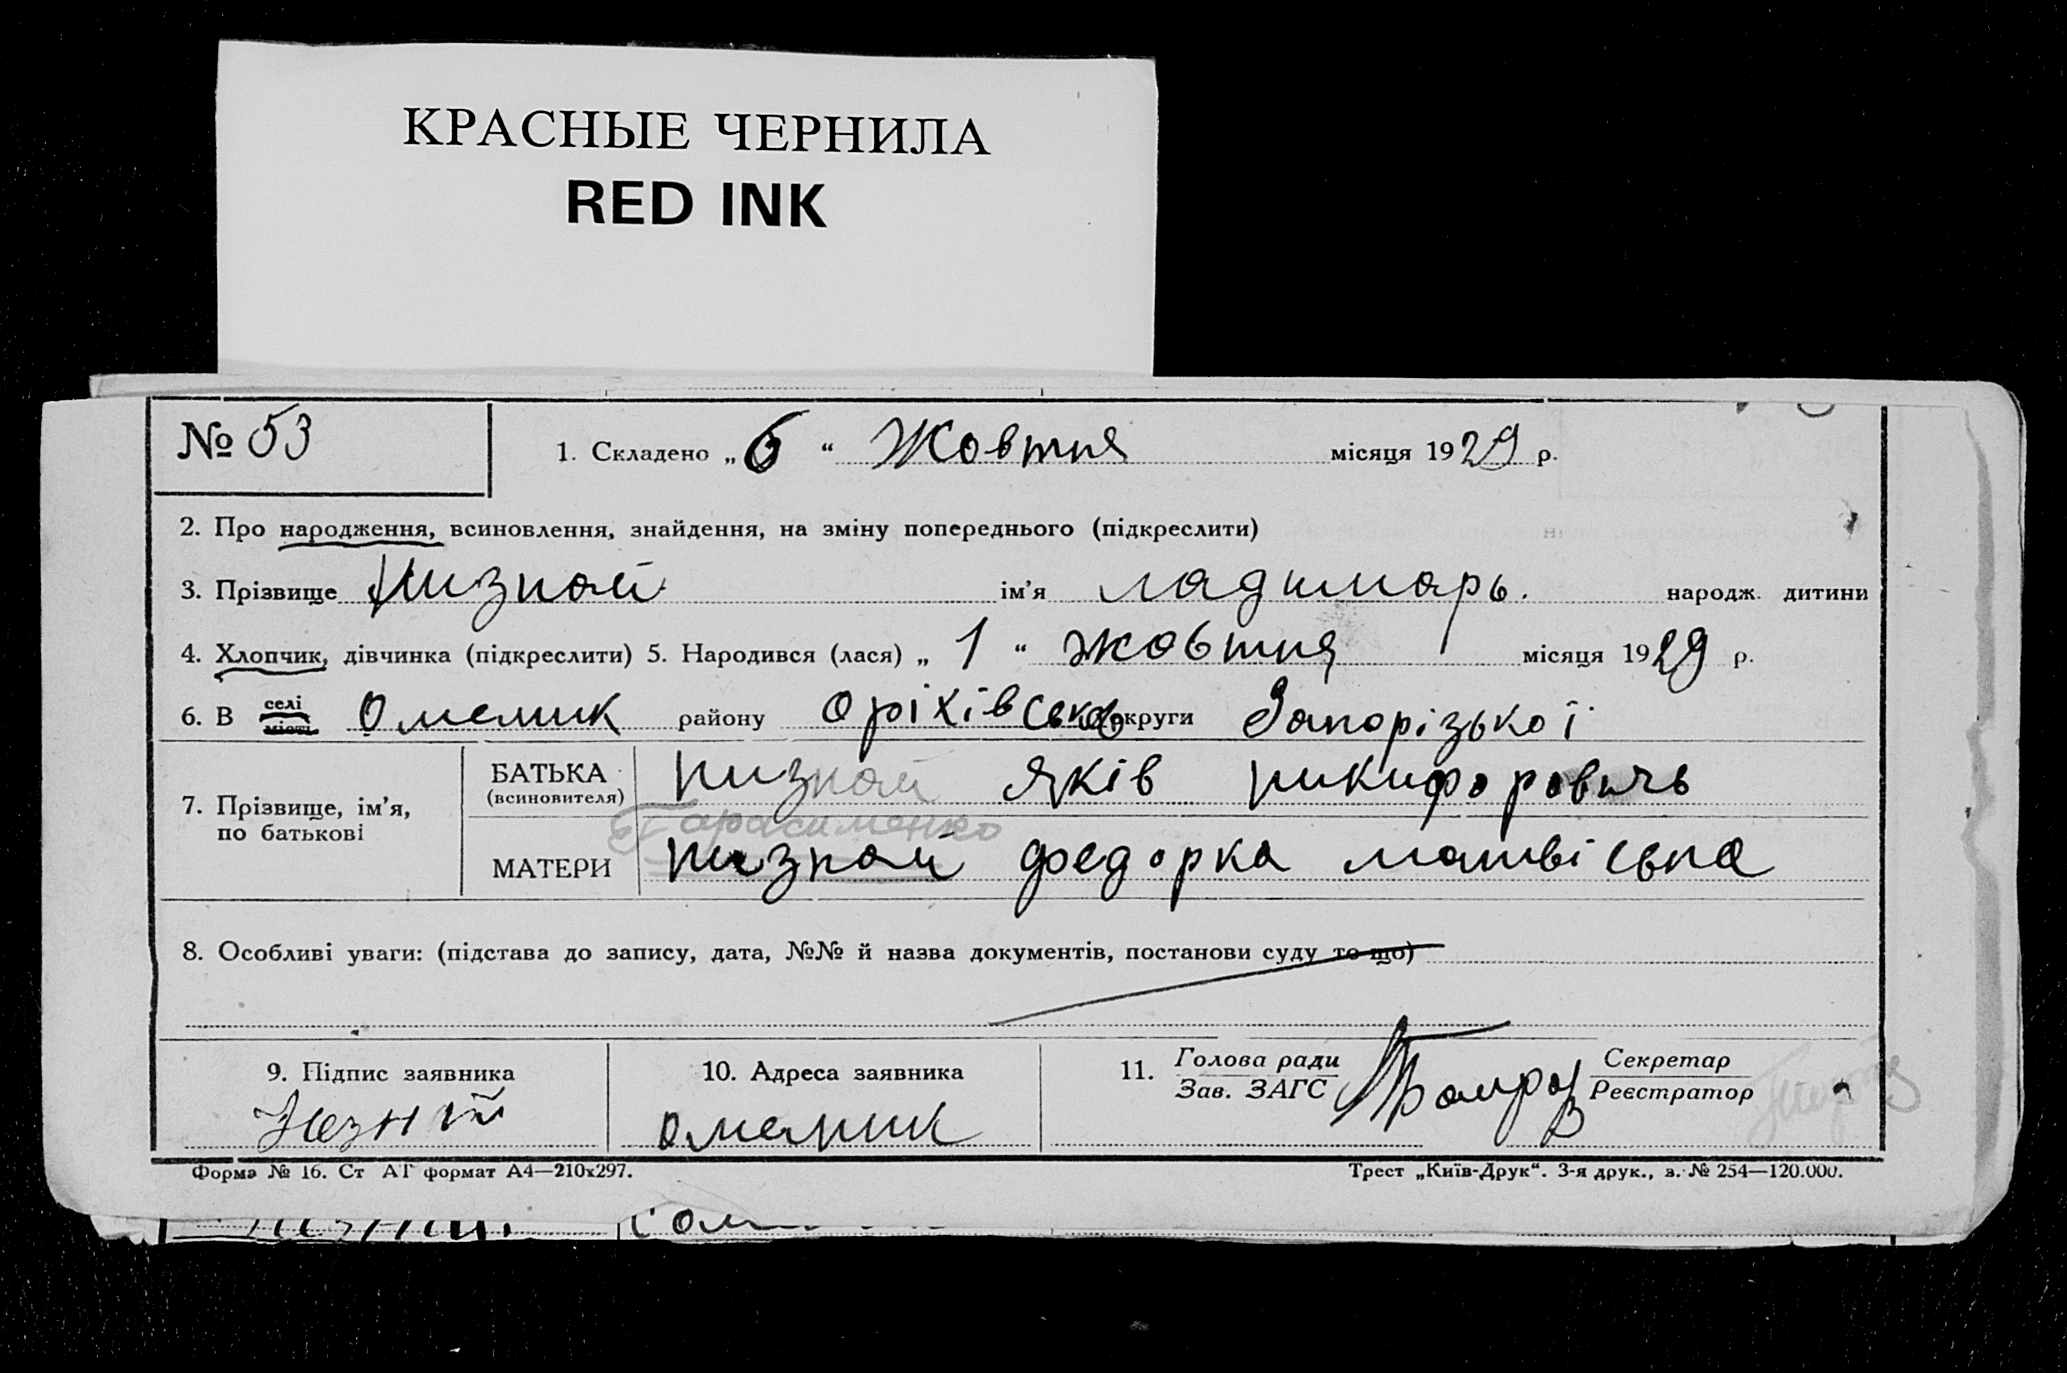 КРАСНЫЕ ЧЕРНИЛА
RED INK
№ 53
1. Складено „ 6 “ Жовтня місяця 1929 р.
2. Про народження, всиновлення, знайдення, на зміну попереднього (підкреслити)
3. Прізвище Низнай ім’я ладимарь. народж. дитини
4. Хлопчик, дівчинка (підкреслити) 5. Народився (лася) „ 1 “ жовтня місяця 1929 р.
6. В селі місті Омелник району Оріхівсько округи Запорізької
7. Прізвище, ім’я, по батькові
БАТЬКА (всиновителя) низнай Яків никифоровичь
Тарасименко
МАТЕРИ низнай федорка матвіевна
8. Особливі уваги: (підстава до запису, дата, №№ й назва документів, постанови суду то що)
9. Підпис заявника
10. Адреса заявника
11. Голова ради Зав. ЗАГС
Секретар Реєстратор
омелник
Форма № 16. Ст АТ формат А4—210х297.
Трест „Київ-Друк“. 3-я друк., з. № 254—120.000.